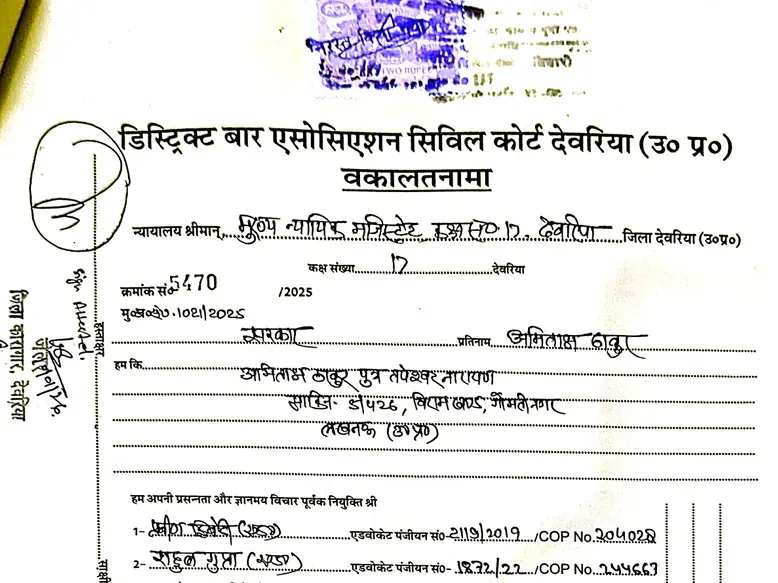 निरस्त किया गया
TWO RUPEES
डिस्ट्रिक्ट बार एसोसिएशन सिविल कोर्ट देवरिया (उ० प्र०)
वकालतनामा
न्यायालय श्रीमान् मुख्य न्यायिक मजिस्ट्रेट कक्ष सं० 17, देवरिया जिला देवरिया (उ०प्र०)
कक्ष संख्या 17 देवरिया
क्रमांक सं० 5470 /2025
मु०अ०सं० 1021/2025
सरकार प्रतिनाम अमिताभ ठाकुर
हम कि
अमिताभ ठाकुर पुत्र तपेश्वर नारायण
साकिन- 5/426, विराम खण्ड, गोमती नगर
लखनऊ (उ०प्र०)
हम अपनी प्रसन्नता और ज्ञानमय विचार पूर्वक नियुक्ति श्री
1- प्रवीण द्विवेदी (एड०) एडवोकेट पंजीयन सं०- 2119/2019 /COP No. 204028
2- राहुल गुप्ता (एड०) एडवोकेट पंजीयन सं०- 1872/22 /COP No. 244663
हस्ताक्षर
Sign Attested
जिला कारागार, देवरिया